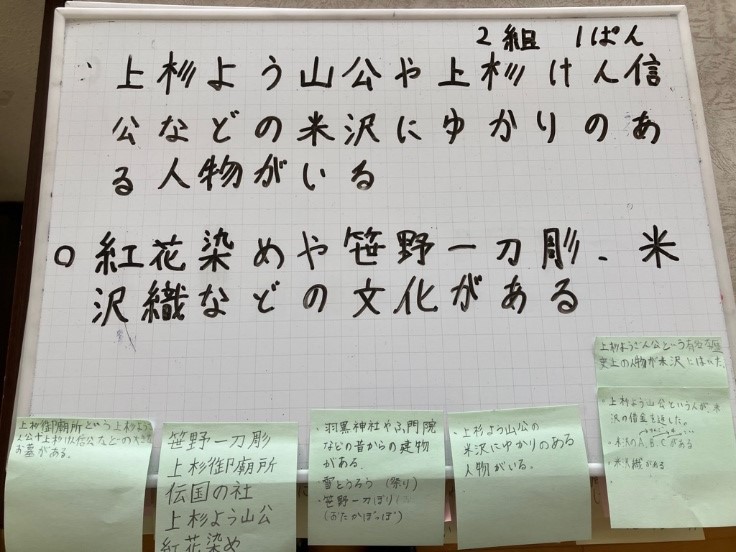 2組 1ぱん
・上杉よう山公や上杉けん信
公などの米沢にゆかりのあ
る人物がいる
○紅花染めや笹野一刀彫、米
沢織などの文化がある
上杉御廟所という上杉よう
お墓がある。
笹野一刀彫
上杉御廟所
伝国の杜
上杉よう山公
紅花染め
・羽黒神社や
などの昔からの建物
がある。
・雪とうろう(祭り)
・笹野一刀ぼり
(おたかぽっぽ)
・上杉よう山公の
米沢にゆかりのある
人物がいる。
上杉ようざん公という
史上の人物が米沢と
・上杉よう山公という人が、米
沢の借金を返した。
・米沢のA、B、Cがある
・米沢織がある